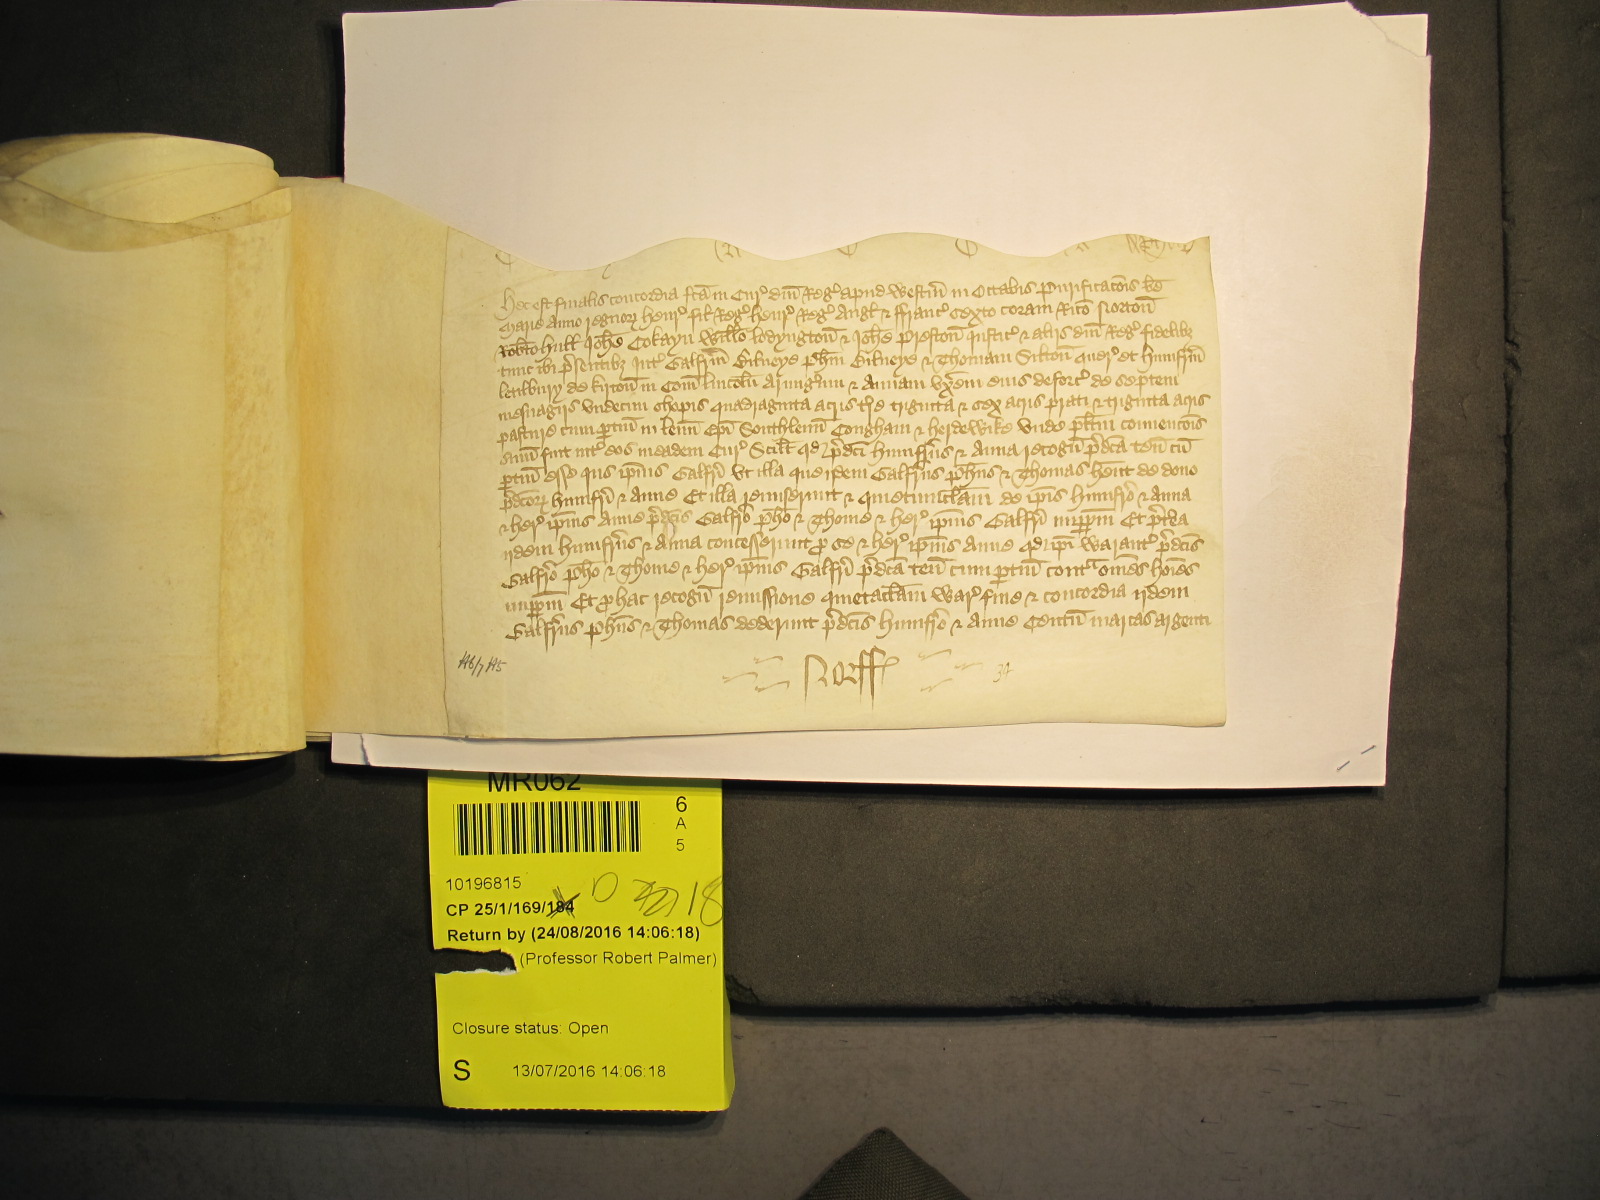 Hec est finalis concordia fcam in Cur' dni Reg' apud Westm in Octabis Purificacois be
Marie Anno regnor Henr' fil Reg' Henr' Reg' Angl & ffranc' sexto coram Rico Norton
Robto Hull Johe Cokayn Willo Lodyngton & Johe Preston Justic' & aliis dni Reg' fidelibz
tunc ibi psentibz Int' Galfrm Bilneye Phm Bilneye & Thomam Silton quer' et Humfrm
de Kirton in Com Lincoln Armig'um & Annam vxem eius deforc' de septem
mesuagiis vndecim shopis quadraginta acris tre triginta & sex acris prati & triginta acris
pasture cum ptin in lenn Epi Southlenn Congham & Herdewike Vnde plitm convencois
sum fuit int' eos in eadem Cur' Scilt qd pdci Humfrus & Anna recogn pdca ten cu
ptin esse ius ipius Galfri Vt illa que idem Galfrus Phus & Thomas hent de dono
pdcor Humfri & Anne Et illa remiserunt & quietumclam de ipis Humfro & Anna
& her' ipius Anne pdcis Galfro Pho & Thome & her' ipius Galfri imppm Et pterea
iidem Humfrus & Anna concesserunt p se & her' ipius Anne qd ipi Warant' pdcis
Galfro Pho & Thome & her' ipius Galfri pdca ten cum ptin cont' omes hoies
imppm Et p hac recogn remissione quietaclam War' fine & concordia iidem
Galfrus Phus & Thomas dederunt pdcis Humfro & Anne Centum marcas argenti
Norff
34
MR062
6
A
5
10196815
CP 25/1/169/184
Return by (24/08/2016 14:06:18)
(Professor Robert Palmer)
Closure status: Open
S 13/07/2016 14:06:18